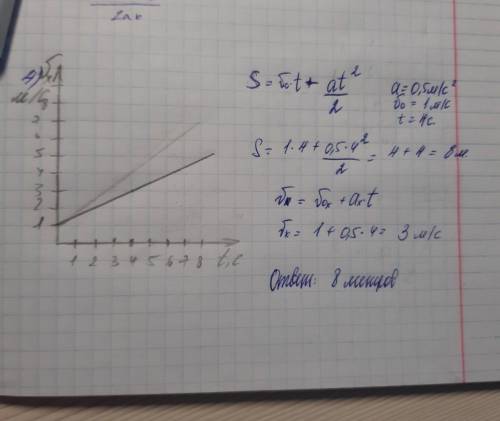 2ах
4) υₓ
м/с
7
6
5
4
3
2
1
1 2 3 4 5 6 7 8 t, c
S = υ₀·t + at²/2
a = 0,5 м/с²
υ₀ = 1 м/с
t = 4 с
S = 1·4 + 0,5·4²/2 = 4 + 4 = 8 м
υₓ = υ₀ₓ + aₓt
υₓ = 1 + 0,5·4 = 3 м/с
Ответ: 8 метров